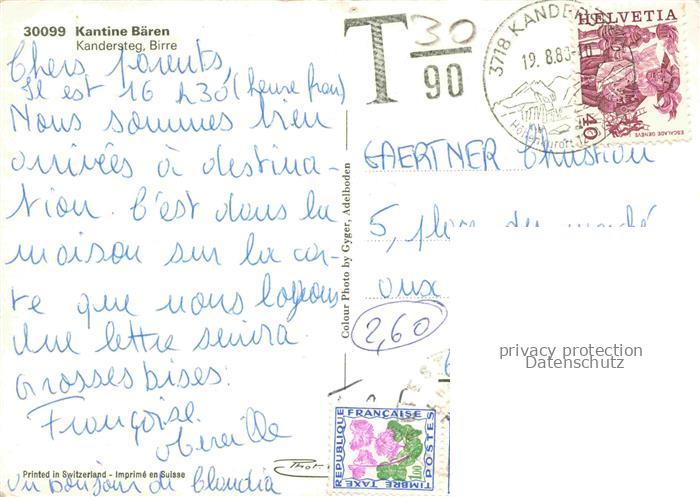 30099 Kantine Bären
Kandersteg, Birre
Chers parents,
Il est 16 h30 (heure fran)
Nous sommes bien
arrivées à destina-
tion. C'est dans la
maison sur la car-
te que nous logeons
Une lettre suivra
Grosses bises.
Françoise
Mireille
un bonjour de Claudia
Printed in Switzerland - Imprimé en Suisse
Colour Photo by Gyger, Adelboden
T 30
90
3718 KANDER
19.8.8
HELVETIA
40
ESCALADE GENÈVE
GAERTNER Christian
5, place du marché
aux
2,60
privacy protection
Datenschutz
REPUBLIQUE FRANÇAISE
POSTES
TIMBRE TAXE
1,00